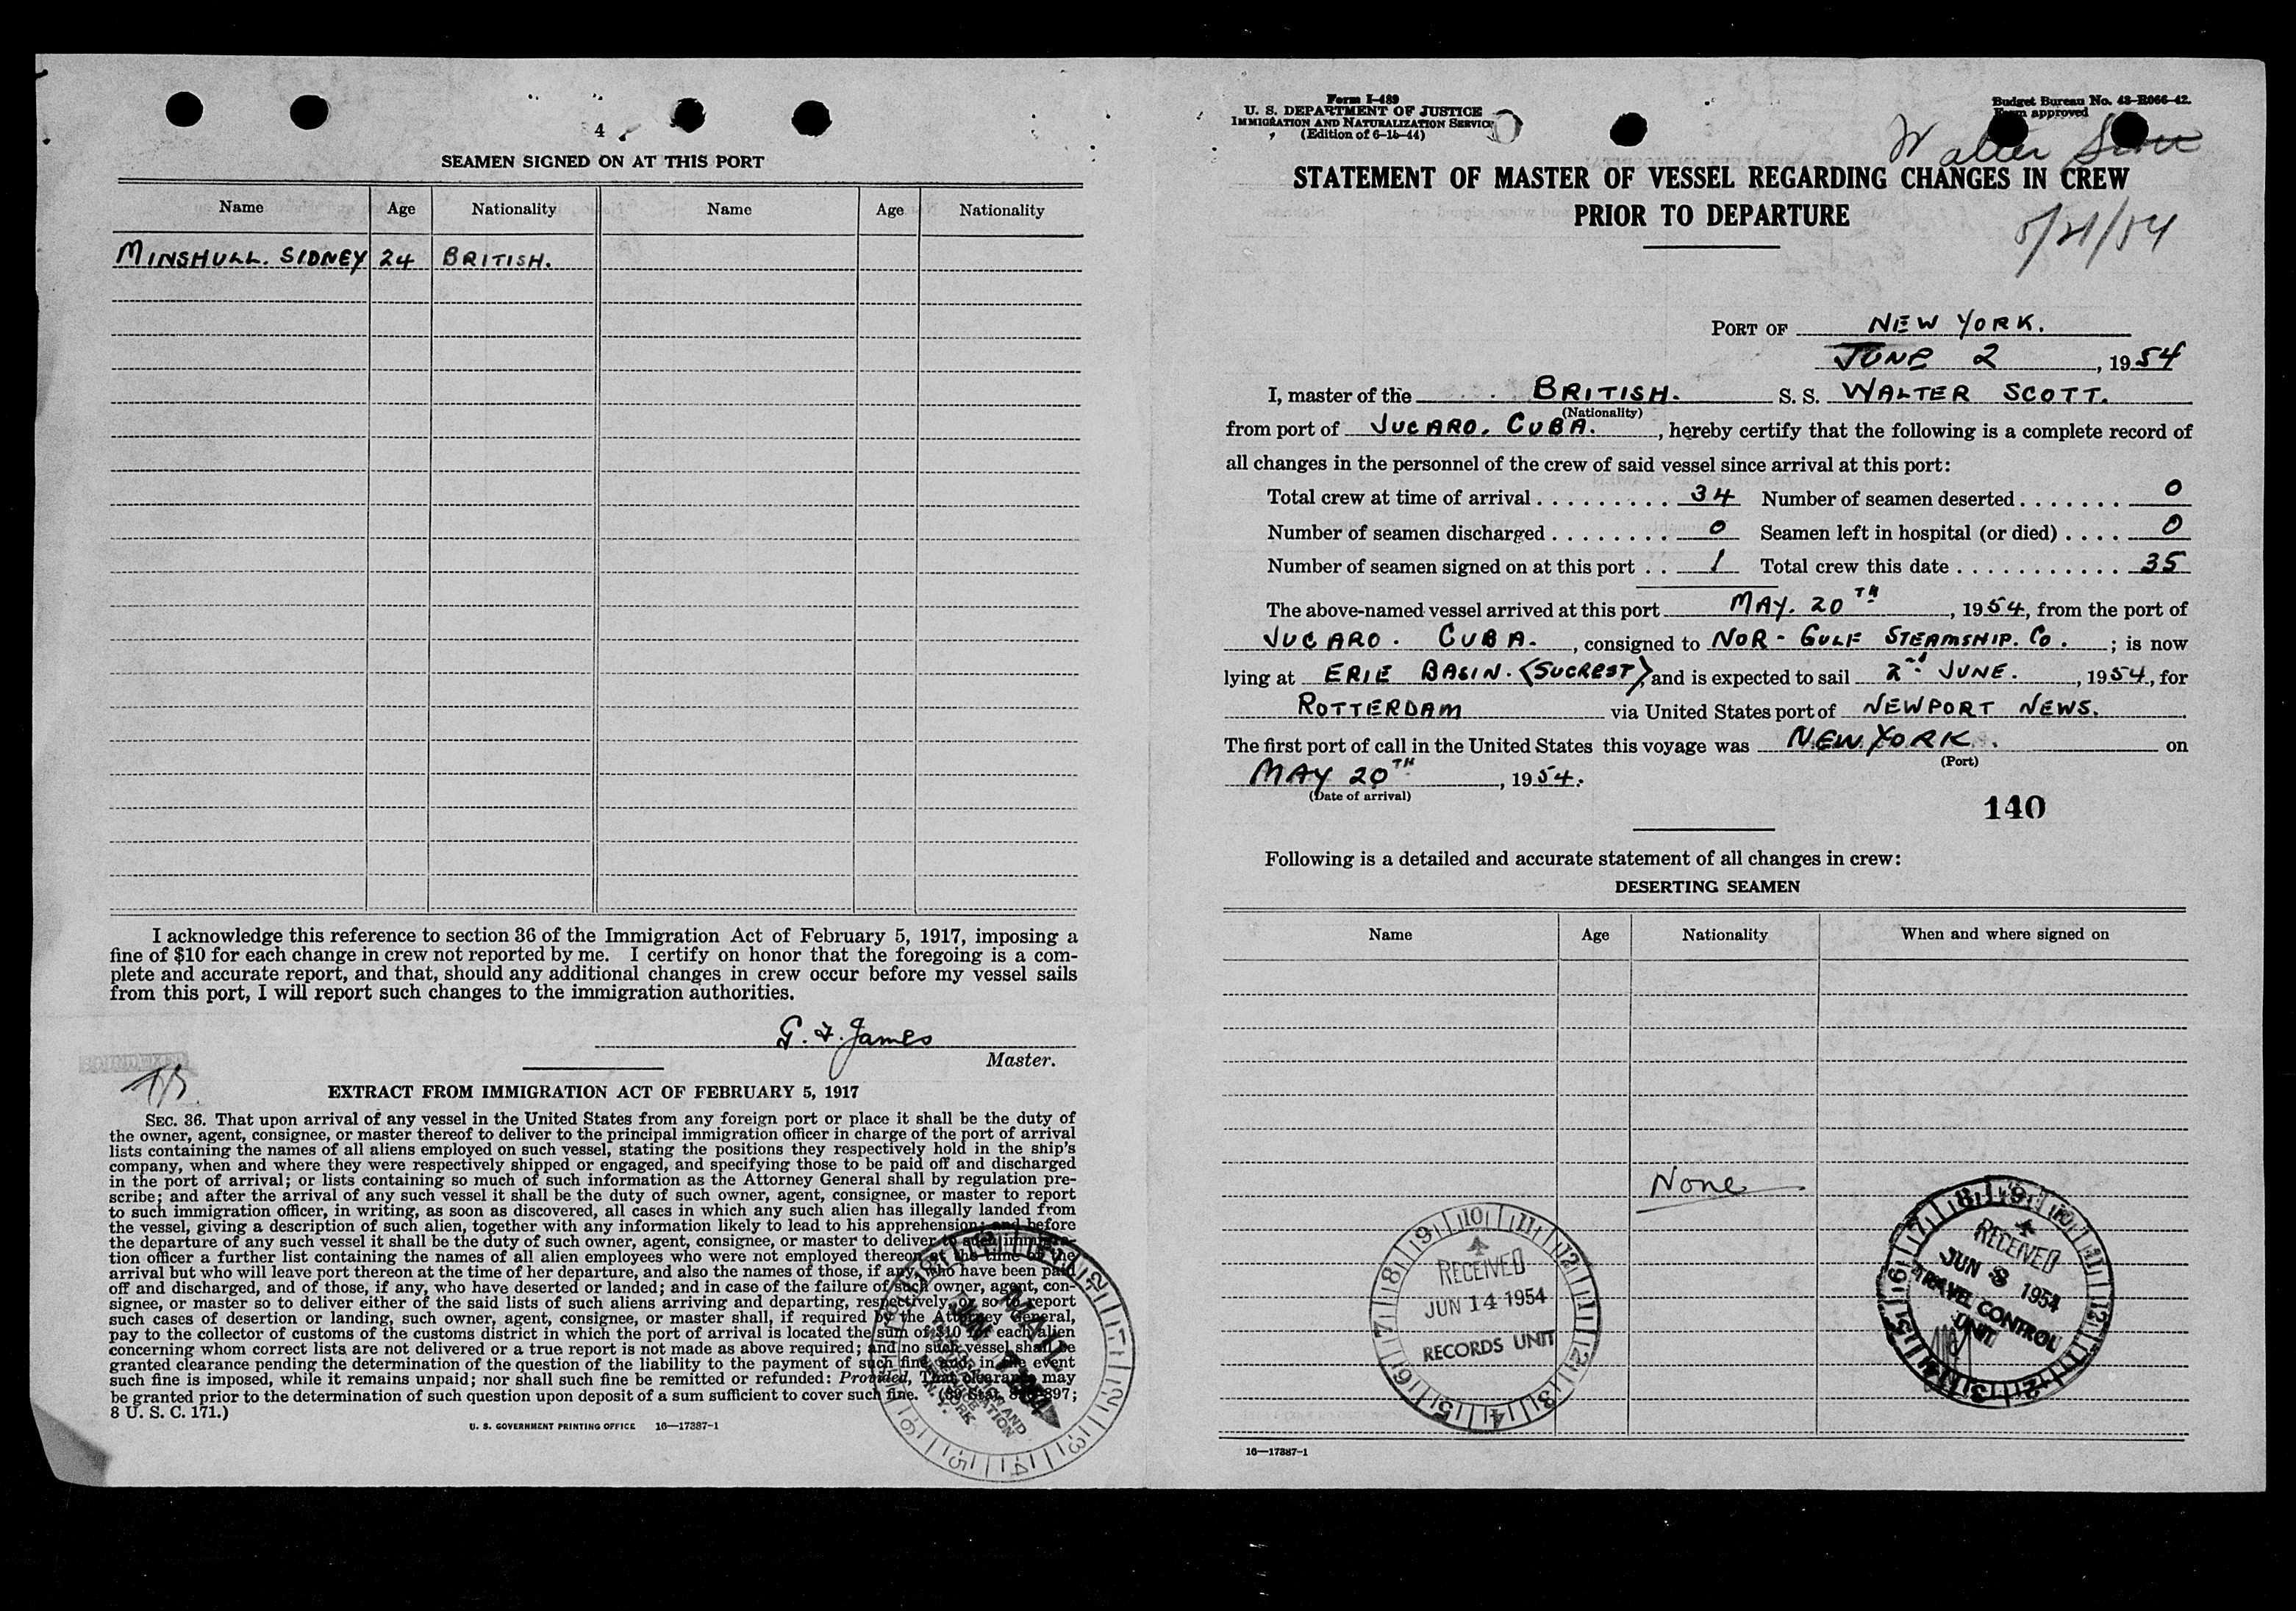 4
SEAMEN SIGNED ON AT THIS PORT
Name Age Nationality Name Age Nationality
MINSHULL. SIDNEY 24 BRITISH.
I acknowledge this reference to section 36 of the Immigration Act of February 5, 1917, imposing a
fine of $10 for each change in crew not reported by me. I certify on honor that the foregoing is a com-
plete and accurate report, and that, should any additional changes in crew occur before my vessel sails
from this port, I will report such changes to the immigration authorities.
G. F. James
Master.
EXTRACT FROM IMMIGRATION ACT OF FEBRUARY 5, 1917
SEC. 36. That upon arrival of any vessel in the United States from any foreign port or place it shall be the duty of
the owner, agent, consignee, or master thereof to deliver to the principal immigration officer in charge of the port of arrival
lists containing the names of all aliens employed on such vessel, stating the positions they respectively hold in the ship's
company, when and where they were respectively shipped or engaged, and specifying those to be paid off and discharged
in the port of arrival; or lists containing so much of such information as the Attorney General shall by regulation pre-
scribe; and after the arrival of any such vessel it shall be the duty of such owner, agent, consignee, or master to report
to such immigration officer, in writing, as soon as discovered, all cases in which any such alien has illegally landed from
the vessel, giving a description of such alien, together with any information likely to lead to his apprehension; and before
the departure of any such vessel it shall be the duty of such owner, agent, consignee, or master to deliver to such immigra-
tion officer a further list containing the names of all alien employees who were not employed thereon at the time of the
arrival but who will leave port thereon at the time of her departure, and also the names of those, if any, who have been paid
off and discharged, and of those, if any, who have deserted or landed; and in case of the failure of such owner, agent, con-
signee, or master so to deliver either of the said lists of such aliens arriving and departing, respectively, or so to report
such cases of desertion or landing, such owner, agent, consignee, or master shall, if required by the Attorney General,
pay to the collector of customs of the customs district in which the port of arrival is located the sum of $10 for each alien
concerning whom correct lists are not delivered or a true report is not made as above required; and no such vessel shall be
granted clearance pending the determination of the question of the liability to the payment of such fine, and, in the event
such fine is imposed, while it remains unpaid; nor shall such fine be remitted or refunded: Provided, That clearance may
be granted prior to the determination of such question upon deposit of a sum sufficient to cover such fine. (39 Stat. 897;
8 U. S. C. 171.)
U. S. GOVERNMENT PRINTING OFFICE 16—17387-1
MAIL
JUN 7 1954
IMMIGRATION AND
NATURALIZATION
NEW YORK
N. Y.
Form I-489
U. S. DEPARTMENT OF JUSTICE
IMMIGRATION AND NATURALIZATION SERVICE
(Edition of 6-15-44)
Budget Bureau No. 43-R066-42.
Form approved
Walter Scott
STATEMENT OF MASTER OF VESSEL REGARDING CHANGES IN CREW
PRIOR TO DEPARTURE
5/21/54
PORT OF NEW YORK.
JUNE 2, 1954
I, master of the BRITISH. S. S. WALTER SCOTT.
(Nationality)
from port of JUCARO. CUBA., hereby certify that the following is a complete record of
all changes in the personnel of the crew of said vessel since arrival at this port:
Total crew at time of arrival . . . . . . . . . 34 Number of seamen deserted . . . . . . . 0
Number of seamen discharged . . . . . . . . 0 Seamen left in hospital (or died) . . . . 0
Number of seamen signed on at this port . . 1 Total crew this date . . . . . . . . . . . . 35
The above-named vessel arrived at this port MAY. 20TH, 1954, from the port of
JUCARO. CUBA., consigned to NOR-GULF STEAMSHIP. Co.; is now
lying at ERIE BASIN. (SUCREST), and is expected to sail 2nd JUNE., 1954, for
ROTTERDAM via United States port of NEWPORT NEWS.
The first port of call in the United States this voyage was NEW YORK. on
(Port)
MAY 20TH, 1954.
(Date of arrival)
140
Following is a detailed and accurate statement of all changes in crew:
DESERTING SEAMEN
Name Age Nationality When and where signed on
None
RECEIVED
JUN 14 1954
RECORDS UNIT
RECEIVED
JUN 3 1954
TRAVEL CONTROL
UNIT
16—17387-1